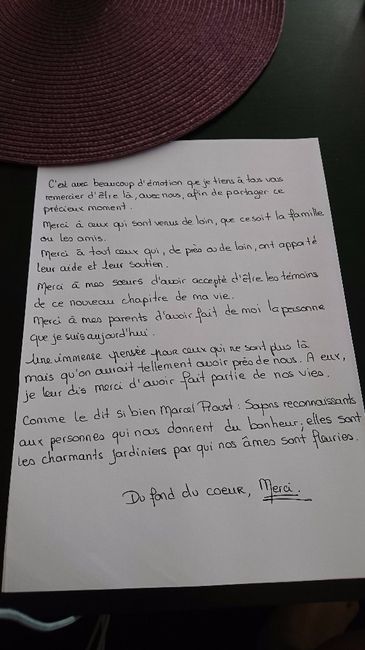 C'est avec beaucoup d'émotion que je tiens à tous vous
remercier d'être là, avec nous, afin de partager ce
précieux moment.
Merci à ceux qui sont venus de loin, que ce soit la famille
ou les amis.
Merci à tout ceux qui, de près ou de loin, ont apporté
leur aide et leur soutien.
Merci à mes sœurs d'avoir accepté d'être les témoins
de ce nouveau chapitre de ma vie.
Merci à mes parents d'avoir fait de moi la personne
que je suis aujourd'hui.
Une immense pensée pour ceux qui ne sont plus là
mais qu'on aurait tellement avoir près de nous. A eux,
je leur dis merci d'avoir fait partie de nos vies.
Comme le dit si bien Marcel Proust : Soyons reconnaissants
aux personnes qui nous donnent du bonheur ; elles sont
les charmants jardiniers par qui nos âmes sont fleuries.
Du fond du coeur, Merci.